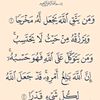 وَمَن يَتَّقِ ٱللَّهَ يَجْعَل لَّهُۥ مَخْرَجًا
وَيَرْزُقْهُ مِنْ حَيْثُ لَا يَحْتَسِبُ
وَمَن يَتَوَكَّلْ عَلَى ٱللَّهِ فَهُوَ حَسْبُهُۥٓ
إِنَّ ٱللَّهَ بَٰلِغُ أَمْرِهِۦ قَدْ جَعَلَ ٱللَّهُ
لِكُلِّ شَىْءٍ قَدْرًا